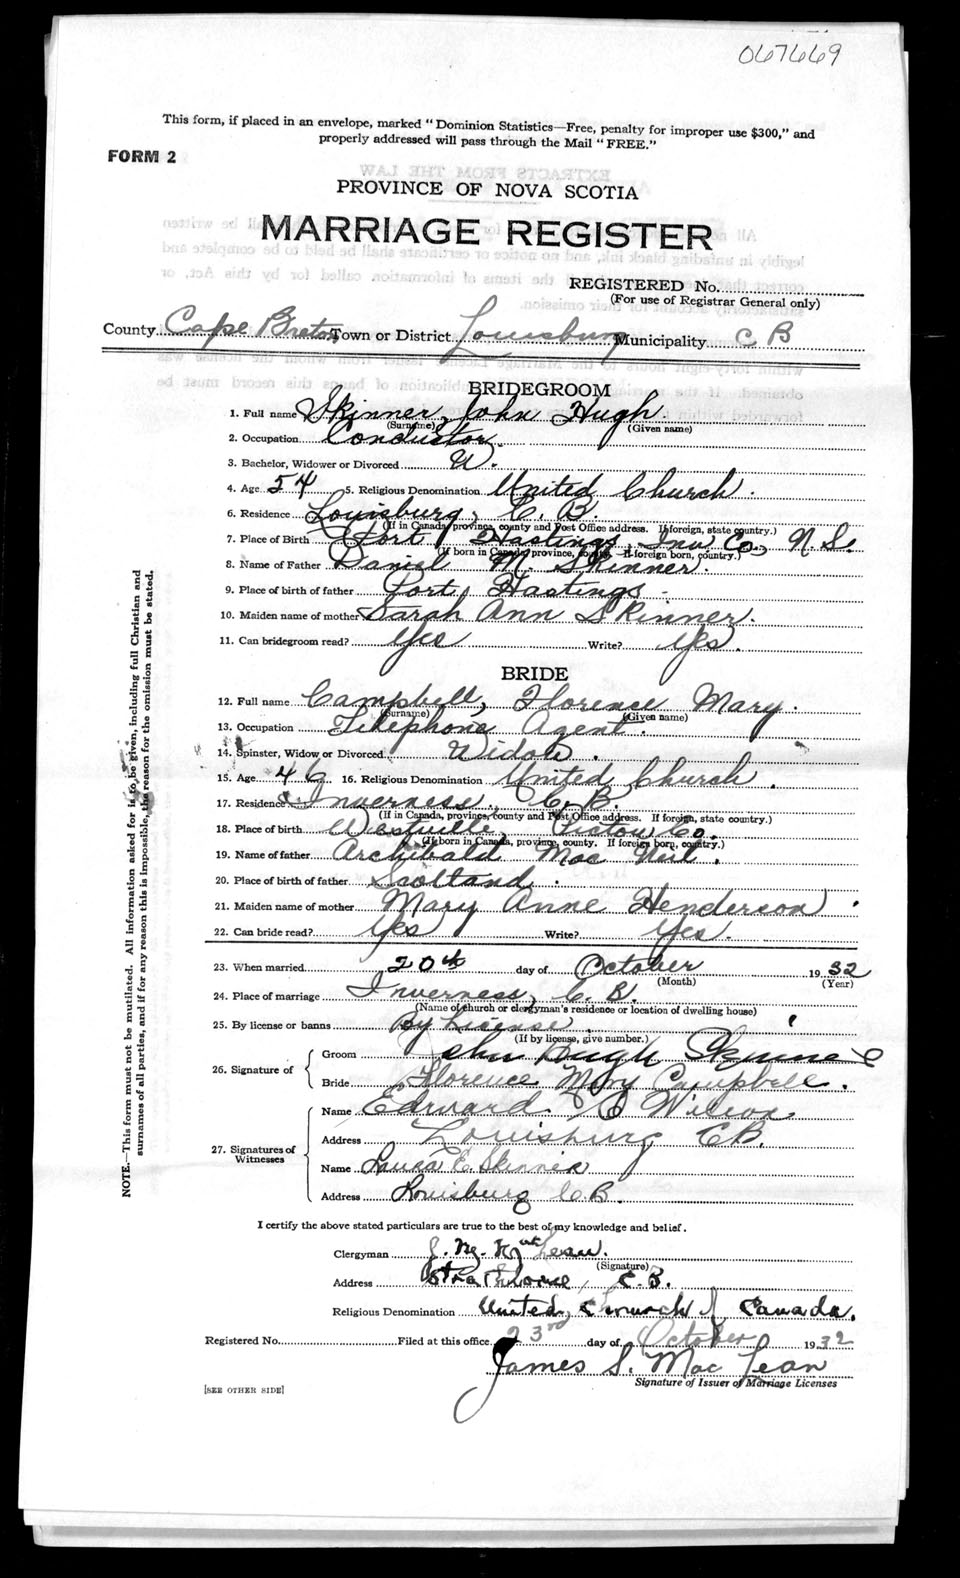 067669
This form, if placed in an envelope, marked "Dominion Statistics—Free, penalty for improper use $300," and
properly addressed will pass through the Mail "FREE."
FORM 2
PROVINCE OF NOVA SCOTIA
MARRIAGE REGISTER
REGISTERED No.
(For use of Registrar General only)
County Cape Breton Town or District Louisburg Municipality C B
BRIDEGROOM
1. Full name Skinner, John Hugh.
(Surname) (Given name)
2. Occupation Conductor.
3. Bachelor, Widower or Divorced W.
4. Age 54 5. Religious Denomination United Church.
6. Residence Louisburg, C. B.
(If in Canada, province, county and Post Office address. If foreign, state country.)
7. Place of Birth Port Hastings Inv. Co. N S.
(If born in Canada, province, county. If foreign born, country.)
8. Name of Father Daniel M. Skinner.
9. Place of birth of father Port Hastings
10. Maiden name of mother Sarah Ann Skinner.
11. Can bridegroom read? Yes Write? Yes.
BRIDE
12. Full name Campbell, Florence Mary.
(Surname) (Given name)
13. Occupation Telephone Agent.
14. Spinster, Widow or Divorced. Widow.
15. Age 46 16. Religious Denomination United Church.
17. Residence Inverness, C. B.
(If in Canada, province, county and Post Office address. If foreign, state country.)
18. Place of birth Westville, Pictou Co.
(If born in Canada, province, county. If foreign born, country.)
19. Name of father Archibald Mac Neil.
20. Place of birth of father Scotland.
21. Maiden name of mother Mary Anne Henderson
22. Can bride read? Yes Write? Yes.
23. When married 20th day of October 1932
(Month) (Year)
24. Place of marriage Inverness, C. B.
(Name of church or clergyman's residence or location of dwelling house)
25. By license or banns By License.
(If by license, give number.)
26. Signature of Groom John Hugh Skinner
Bride Florence Mary Campbell.
27. Signatures of Witnesses Name Edward Wilcox
Address Louisburg CB.
Name Laura E. Skinner
Address Louisburg C.B.
I certify the above stated particulars are true to the best of my knowledge and belief.
Clergyman
(Signature)
Address Strathlorne, C.B.
Religious Denomination United Church of Canada.
Registered No. Filed at this office 23rd day of October 1932
James S. Mac Lean
Signature of Issuer of Marriage Licenses
[SEE OTHER SIDE]
NOTE.—This form must not be mutilated. All information asked for is to be given, including full Christian and
surnames of all parties, and if for any reason this is impossible, the reason for the omission must be stated.